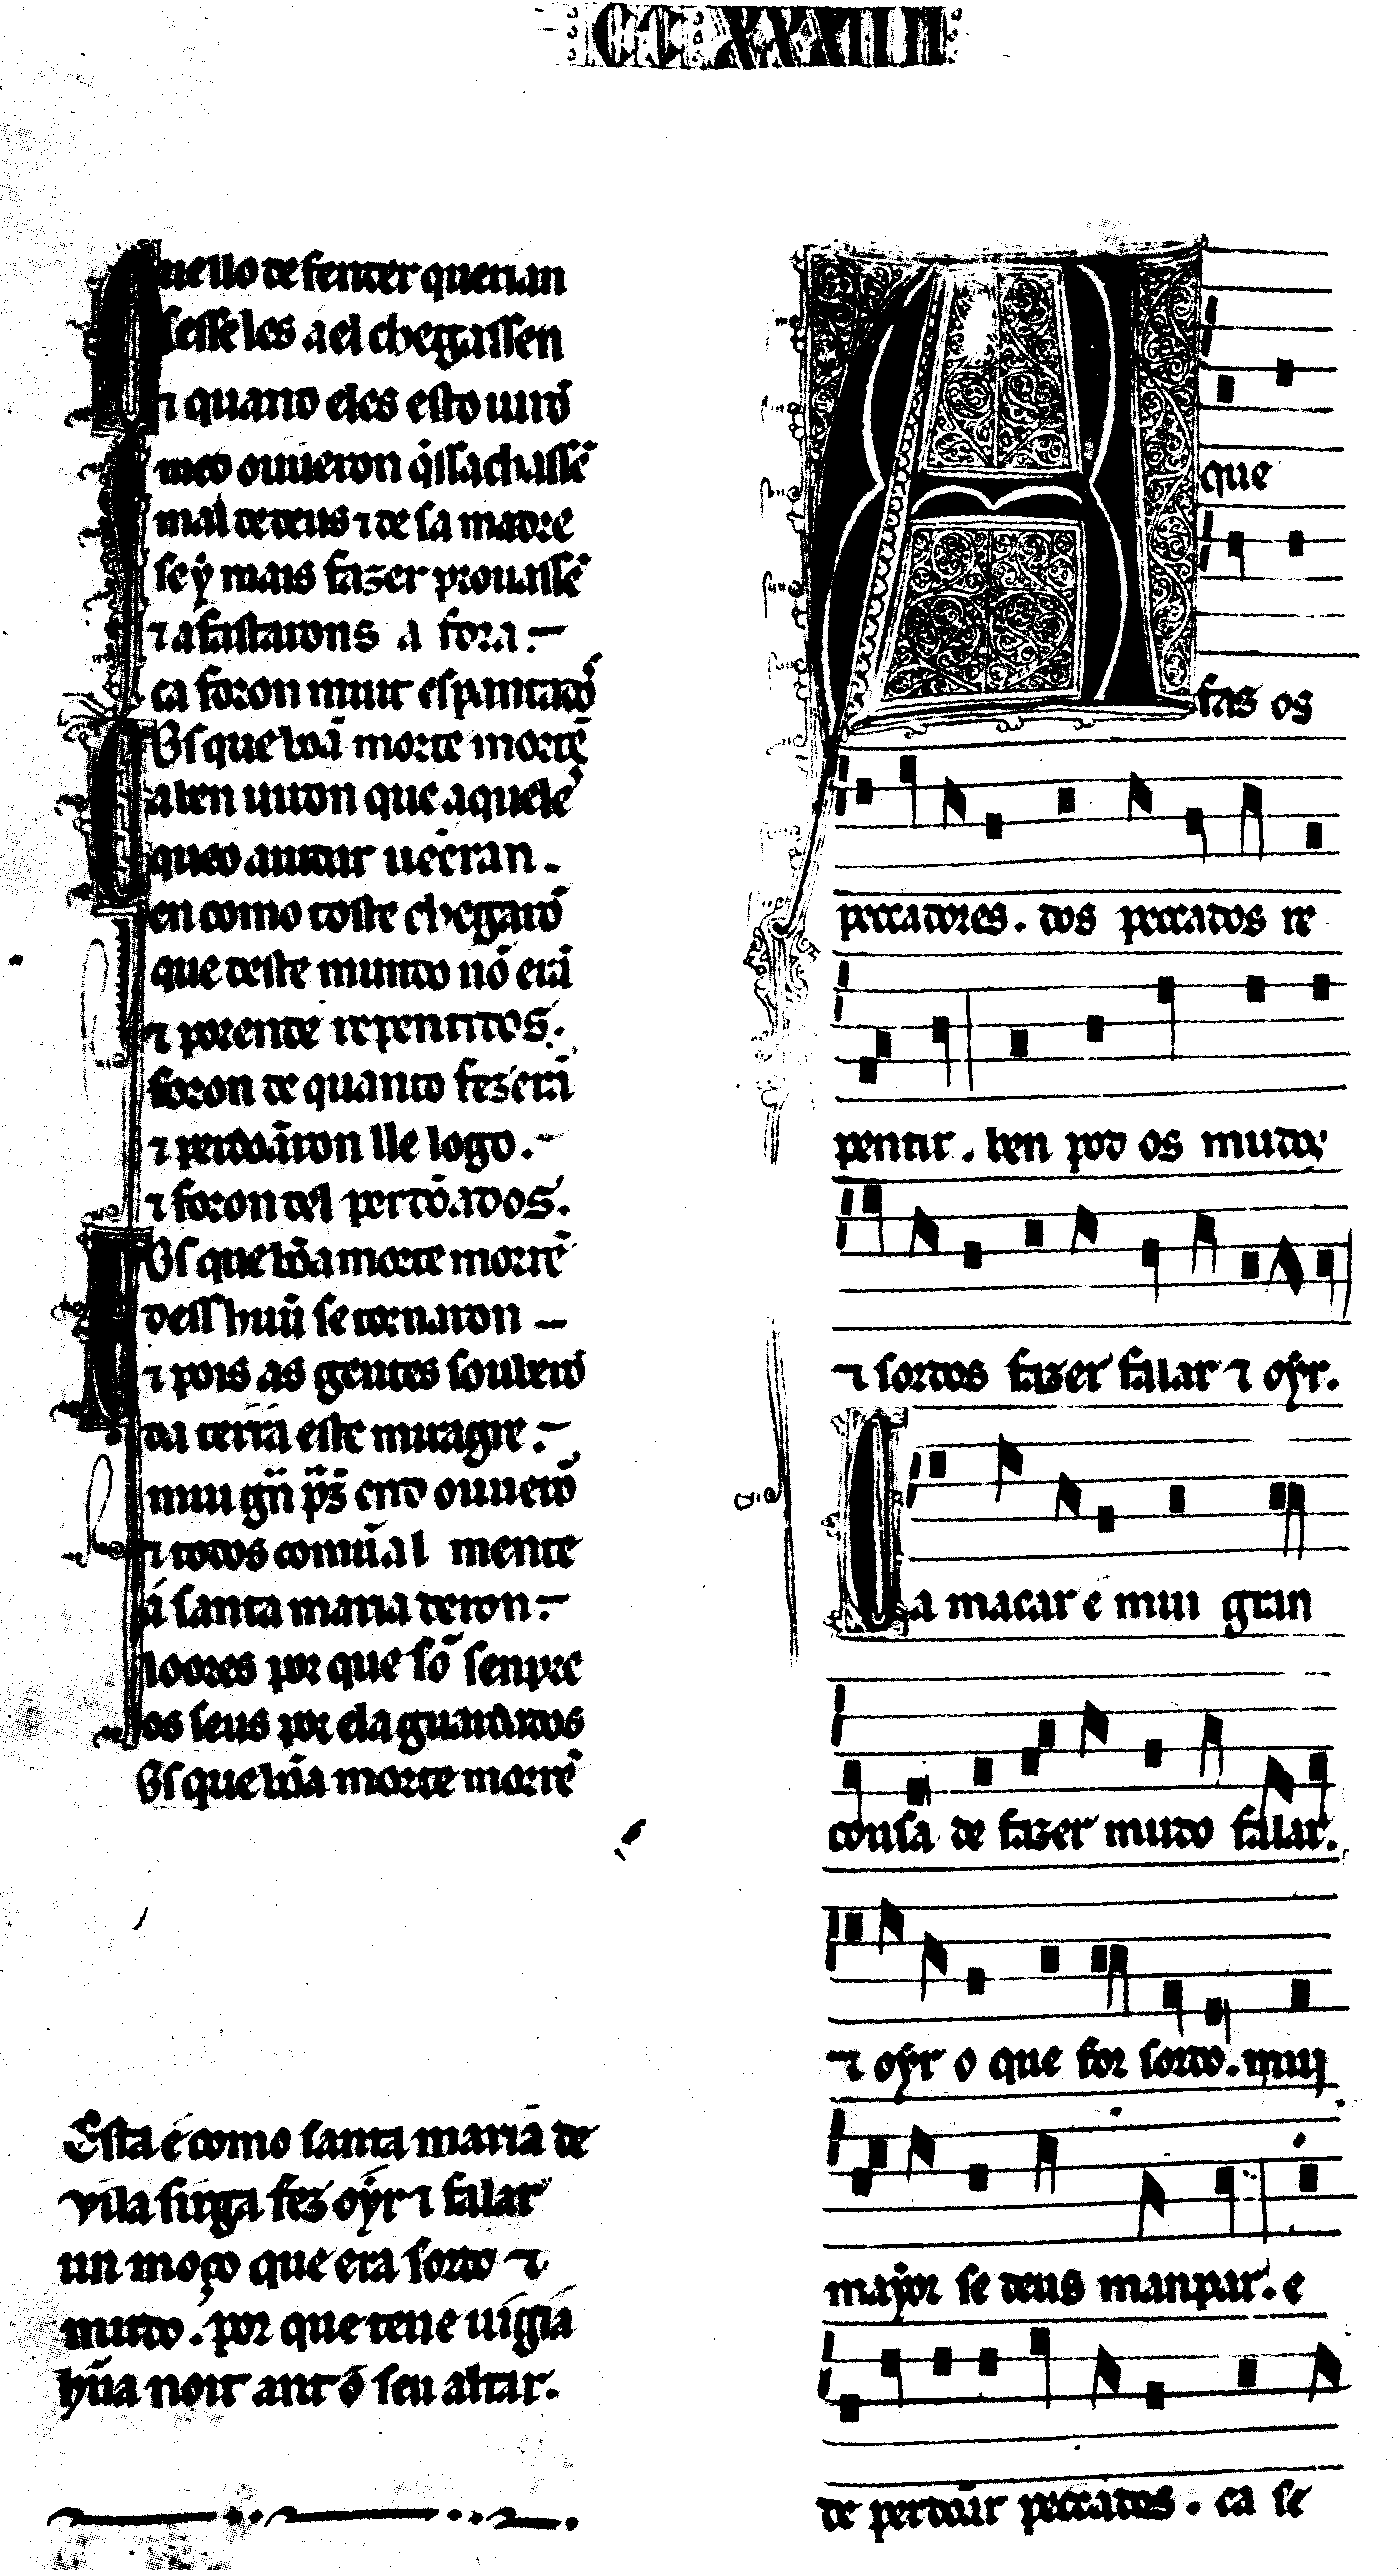 CCXXXIIII
uello de fender querian
sesse les a el chegassen
⁊ quando eles esto uirõ
medo ouueron q̃ss achassẽ
mal de deus ⁊ de sa madre
se ỹ mais fazer prouassẽ
⁊ afastarons a fora :-
ca foron muit espantados
Os que bõa morte morrẽ
a ben uiron que aquele
que o auidar uẽeran .
en como toste chegarõ
que deste mundo nõ erã
⁊ porende repentidos .
foron de quanto fezerã
⁊ perdõaron lle logo .-
⁊ foron del perdõados .
Os que bõa morte morrẽ
dess hũu se tornaron –
⁊ pois as gentes souberõ
da terra este miragre :-
mui gñ p̃s end ouuerõ
⁊ todos comũal mente
a santa maria deron :-
loores por que sõ senpre
os seus por ela guardados
Os que bõa morte morrẽ
Esta é como santa maria de
vila sirga fez oyr ⁊ falar
un moço que era sordo ⁊
mudo . por que teue uigia
hũa noit ant o seu altar .
A que
faz os
peccadores . dos peccados re
pentir . ben pod os mudos
⁊ sordos fazer falar ⁊ oyr .
Ca macar é mui gran
cousa de fazer mudo falar .
⁊ oyr o que for sordo . mui
mayor se deus manpar . é
de perdõar peccados . ca se